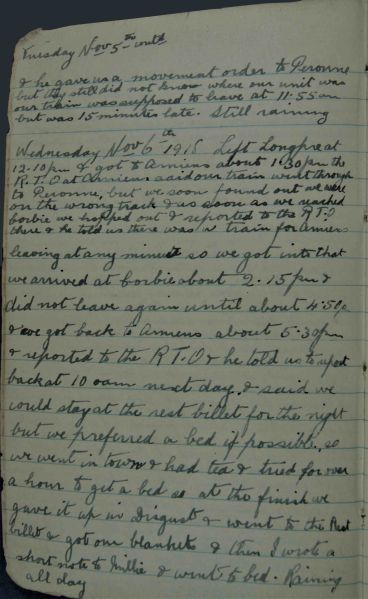 Tuesday Nov 5th contd
& he gave us a movement order to Peronne
but they still did not know where our unit was
our train was supposed to leave at 11.55 am
but was 15 minutes late. Still raining
Wednesday Nov 6th 1918 Left Longpre at
12.10 pm & got to Amiens about 1.30 pm the
R.T.O at Amiens said our train went through
to Peronne, but we soon found out we were
on the wrong track & as soon as we reached
Corbie we hopped out & reported to the R.T.O
there & he told us there was a train for Amiens
leaving at any minute so we got into that
we arrived at Corbie about 2.15 pm &
did not leave again until about 4.50 p
& we got back to Amiens about 5.30 pm
& reported to the R T.O & he told us to report
back at 10 oam next day. & said we
could stay at the rest billet for the night
but we preferred a bed if possible, so
we went in town & had tea & tried for over
a hour to get a bed so at the finish we
gave it up in Disgust & went to the Rest
billet & got our blankets & then I wrote a
short note to Millie & went to bed. Raining
all day